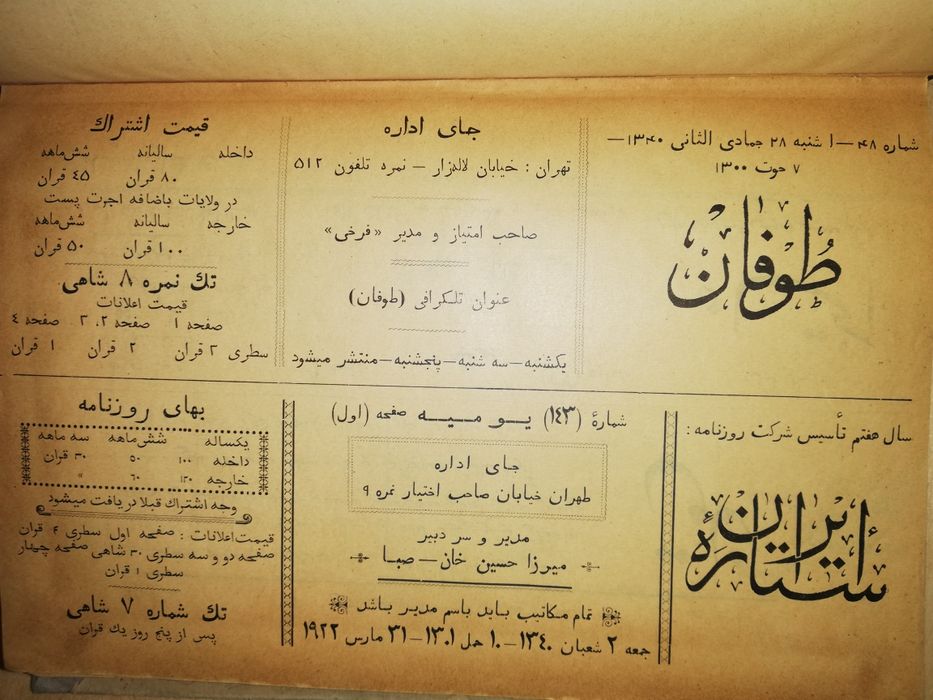 شماره ۴۸—۱ شنبه ۲۸ جمادی الثانی ۱۳۴۰—
۷ حوت ۱۳۰۰
طوفان
جای اداره
تهران : خیابان لاله‌زار — نمره تلفون ۵۱۲
صاحب امتیاز و مدیر «فرخی»
عنوان تلگرافی (طوفان)
یکشنبه—سه شنبه—پنجشنبه—منتشر میشود
قیمت اشتراك
داخله سالیانه شش‌ماهه
۸۰ قران ۴۵ قران
در ولایات باضافه اجرت پست
خارجه سالیانه شش‌ماهه
۱۰۰ قران ۵۰ قران
تك نمره ۸ شاهی
قیمت اعلانات
صفحه ۱ صفحه ۲، ۳ صفحه ۴
سطری ۳ قران ۲ قران ۱ قران
سال هفتم تأسیس شرکت روزنامه :
ستارهٔ ایران
شمارهٔ (۱۴۳) یـومیـه صفحه (اول)
جای اداره
طهران خیابان صاحب اختیار نمره ۹
مدیر و سر دبیر
میرزا حسین خان — صبا
تمام مکاتیب باید باسم مدیر باشد
جمعه ۲ شعبان ۱۳۴۰—۱۰ حمل ۱۳۰۱—۳۱ مارس ۱۹۲۲
بهای روزنامه
یکساله شش‌ماهه سه ماهه
داخله ۱۰۰ ۵۰ ۳۰ قران
خارجه ۱۲۰ ۶۰ »
وجه اشتراك قبلا دریافت میشود
قیمت‌اعلانات : صفحه اول سطری ۴ قران
صفحه دو و سه سطری ۳۰ شاهی صفحه چهار
سطری ۱ قران
تك شماره ۷ شاهی
پس از پنج روز یك قران